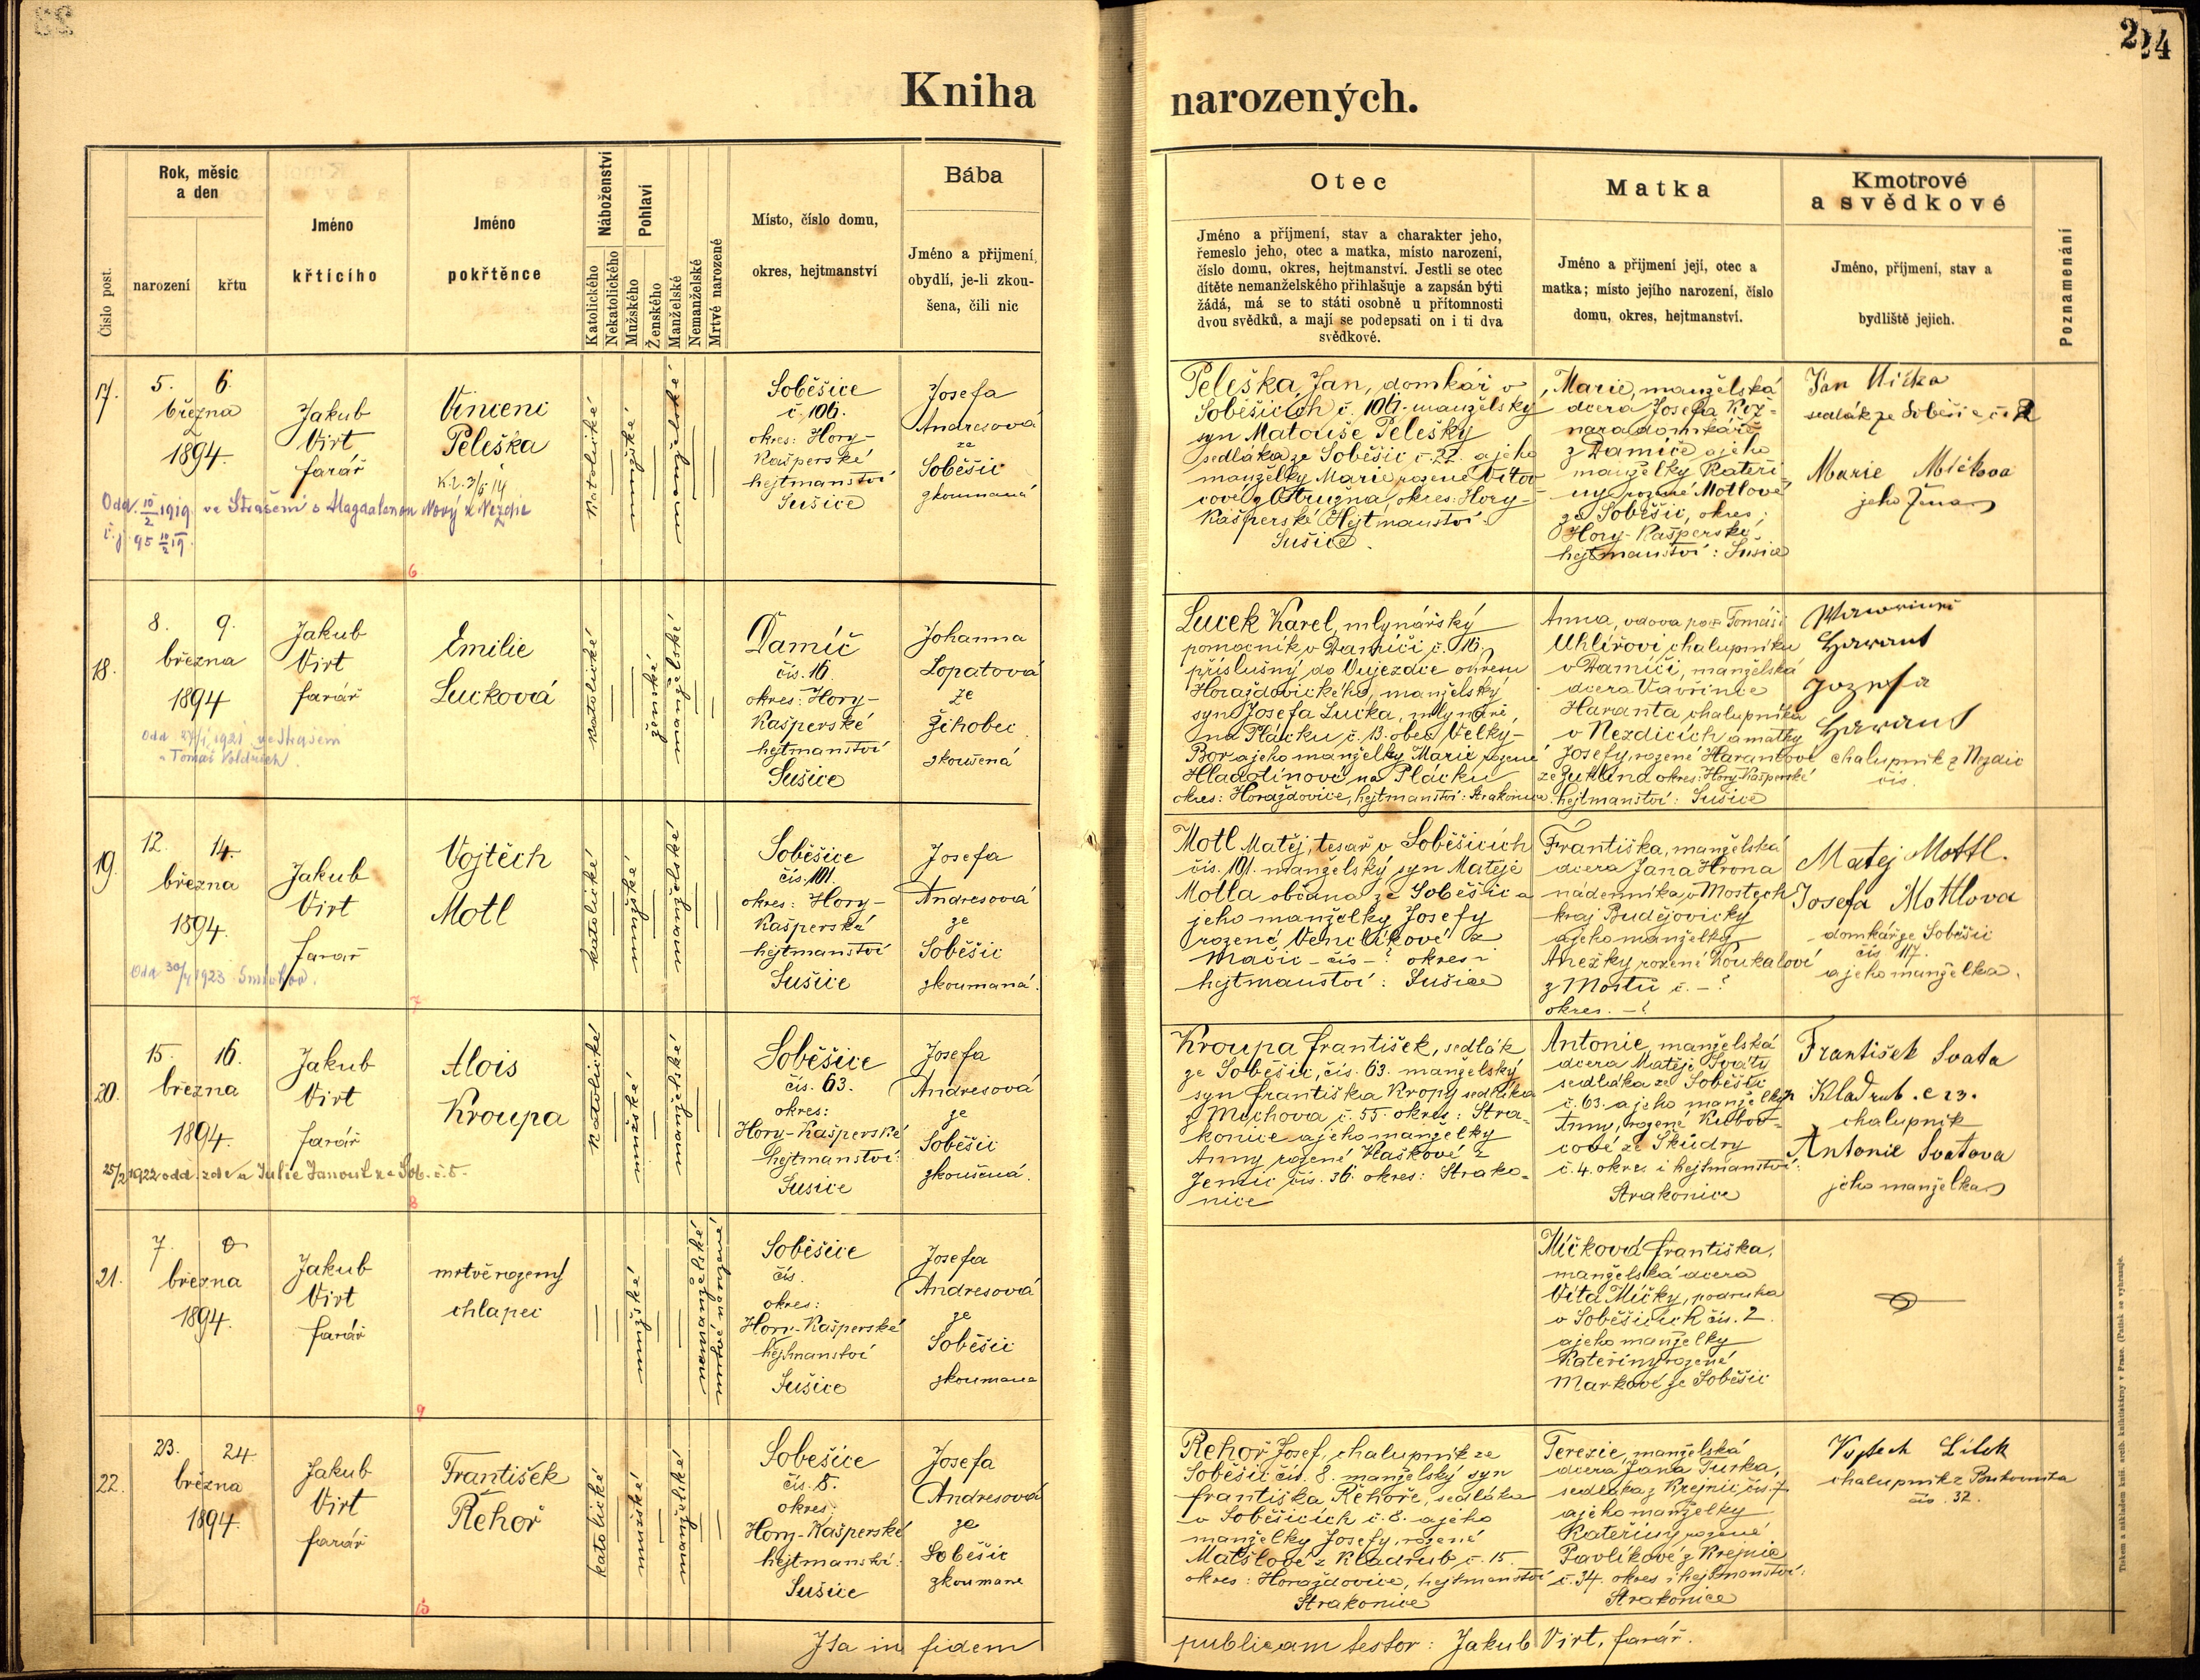 224
Kniha narozených.
Číslo post.
Rok, měsíc
a den
narození
křtu
Jméno
křtícího
Jméno
pokřtěnce
Náboženství
Katolického
Nekatolického
Pohlaví
Mužského
Ženského
Manželské
Nemanželské
Mrtvě narozené
Místo, číslo domu,
okres, hejtmanství
Bába
Jméno a přijmení,
obydlí, je-li zkou-
šena, čili nic
Otec
Jméno a příjmení, stav a charakter jeho,
řemeslo jeho, otec a matka, místo narození,
číslo domu, okres, hejtmanství. Jestli se otec
dítěte nemanželského přihlašuje a zapsán býti
žádá, má se to státi osobně u přítomnosti
dvou svědků, a mají se podepsati on i ti dva
svědkové.
Matka
Jméno a přijmení její, otec a
matka; místo jejího narození, číslo
domu, okres, hejtmanství.
Kmotrové
a svědkové
Jméno, příjmení, stav a
bydliště jejich.
Poznamenání
17.
5. 6.
března
1894.
Jakub
Virt
farář
Vincenc
Peleška
Odd. 10/2 1919 ve Strašení s Magdalenou Nový z Nezdic
č. j. 95 10/2 19.
6
katolické
mužské
manželské
Soběšice
č. 106.
okres: Hory-
Kašperské
hejtmanství
Sušice
Josefa
Andresová
ze
Soběšic
zkoumaná
Peleška Jan, domkář v
Soběšicích č. 106. manželský
syn Matouše Pelešky
sedláka ze Soběšic č. 22. a jeho
manželky Marie rozené Vítov-
cové z Ostružna, okres: Hory-
Kašperské Hejtmanství
Sušice.
Marie, manželská
dcera Josefa Koz-
nara domkáře
z Damíče a jeho
manželky Kateři
ny, rozené Motlové
ze Soběšic, okres:
Hory-Kašperské,
hejtmanství: Sušice
Jan Mička
sedlák ze Soběšic č. 2
Marie Mičkova
jeho žena
18.
8. 9.
března
1894
Jakub
Virt
farář
Emilie
Lucková
Odd 27/1 1921 ve Strašení
s Tomáš Voldřich.
katolické
ženské
manželské
Damíč
čís. 16.
okres: Hory-
Kašperské
hejtmanství
Sušice
Johanna
Lopatová
ze
Žihobec
zkoušená
Lucek Karel, mlynářský
pomocník v Damíči č. 16.
příslušný do Vujezdce okresu
Horažďovického, manželský
syn Josefa Lucka, mlynáře,
na Plácku č. 13. obec Velký-
Bor a jeho manželky Marie rozené
Hladotínové na Plácku
okres: Horažďovice, hejtmanství: Strakonice.
Anna, vdova po Tomáši
Uhlířovi chalupníku
v Damíči, manželská
dcera Vavřince
Haranta chalupníka
v Nezdicích a matky
Josefy, rozené Harantové
ze Žuklína okres: Hory-Kašperské
hejtmanství: Sušice
Wawrinec
Harant
Jozefa
Harant
chalupník z Nezdic
čís.
19.
12. 14.
března
1894.
Jakub
Virt
farář
Vojtěch
Motl
Odd 30/4 1923 Smíchov.
7
katolické
mužské
manželské
Soběšice
čís. 101.
okres: Hory-
Kašperské
hejtmanství
Sušice
Josefa
Andresová
ze
Soběšic
zkoumaná.
Motl Matěj, tesař v Soběšicích
čís. 101. manželský syn Matěje
Motla občana ze Soběšic a
jeho manželky Josefy
rozené Venclíkové z
Mačic - čís - ? okres i
hejtmanství: Sušice
Františka, manželská
dcera Jana Hrona
nádenníka v Mostech
kraj Budějovický
a jeho manželky
Anežky rozené Koukalové
z Mostů č. - ?
okres. - ?
Matej Mottl.
Josefa Mottlova
domkář ze Soběšic
čís 117.
a jeho manželka.
20.
15. 16.
března
1894.
Jakub
Virt
farář
Alois
Kroupa
25/2 1922 odd. zde s Julie Janoušk ze Sob. č. 5
8
katolické
mužské
manželské
Soběšice
čís. 63.
okres:
Hory-Kašperské
hejtmanství:
Sušice
Josefa
Andresová
ze
Soběšic
zkoušená.
Kroupa František, sedlák
ze Soběšic, čís. 63. manželský
syn Františka Kropy sedláka
z Mechova č. 55. okres: Stra-
konice a jeho manželky
Anny rozené Haškové z
Jemic čís. 36. okres: Strako-
nice
Antonie manželská
dcera Matěje Svaty
sedláka ze Soběšic
č. 63. a jeho manželky
Anny, rozené Kubov-
cové ze Škůdry
č. 4. okres i hejtmanství:
Strakonice
František Svata
Kladrub. č 23.
chalupník
Antonie Svatova
jeho manželka
21.
7. 0
března
1894.
Jakub
Virt
farář
mrtvě rozený
chlapec
9
mužské
nemanželské
mrtvě narozené
Soběšice
čís.
okres:
Hory-Kašperské
hejtmanství
Sušice
Josefa
Andresová
ze
Soběšic
zkoumana
Míčková Františka,
manželská dcera
Víta Míčky, podruha
v Soběšicích čís. 2.
a jeho manželky
Kateřiny rozené
Markové ze Soběšic
22.
23. 24.
března
1894.
Jakub
Virt
farář
František
Řehoř
10
katolické
mužské
manželské
Soběšice
čís. 8.
okres:
Hory-Kašperské
hejtmanství:
Sušice
Josefa
Andresová
ze
Soběšic
zkoumane
Řehoř Josef, chalupník ze
Soběšic čís. 8. manželský syn
Františka Řehoře, sedláka
v Soběšicích č. 8. a jeho
manželky Josefy, rozené
Matšlové z Kladrub č. 15.
okres: Horažďovice, hejtmanství
Strakonice
Terezie, manželská
dcera Jana Turka,
sedláka z Krejnic čís. 7.
a jeho manželky
Kateřiny rozené
Pavlíkové z Krejnic
č. 34. okres i hejtmanství:
Strakonice
Vojtech Lilek
chalupník z
čís. 32.
Ita in fidem publicam testor: Jakub Virt, farář.